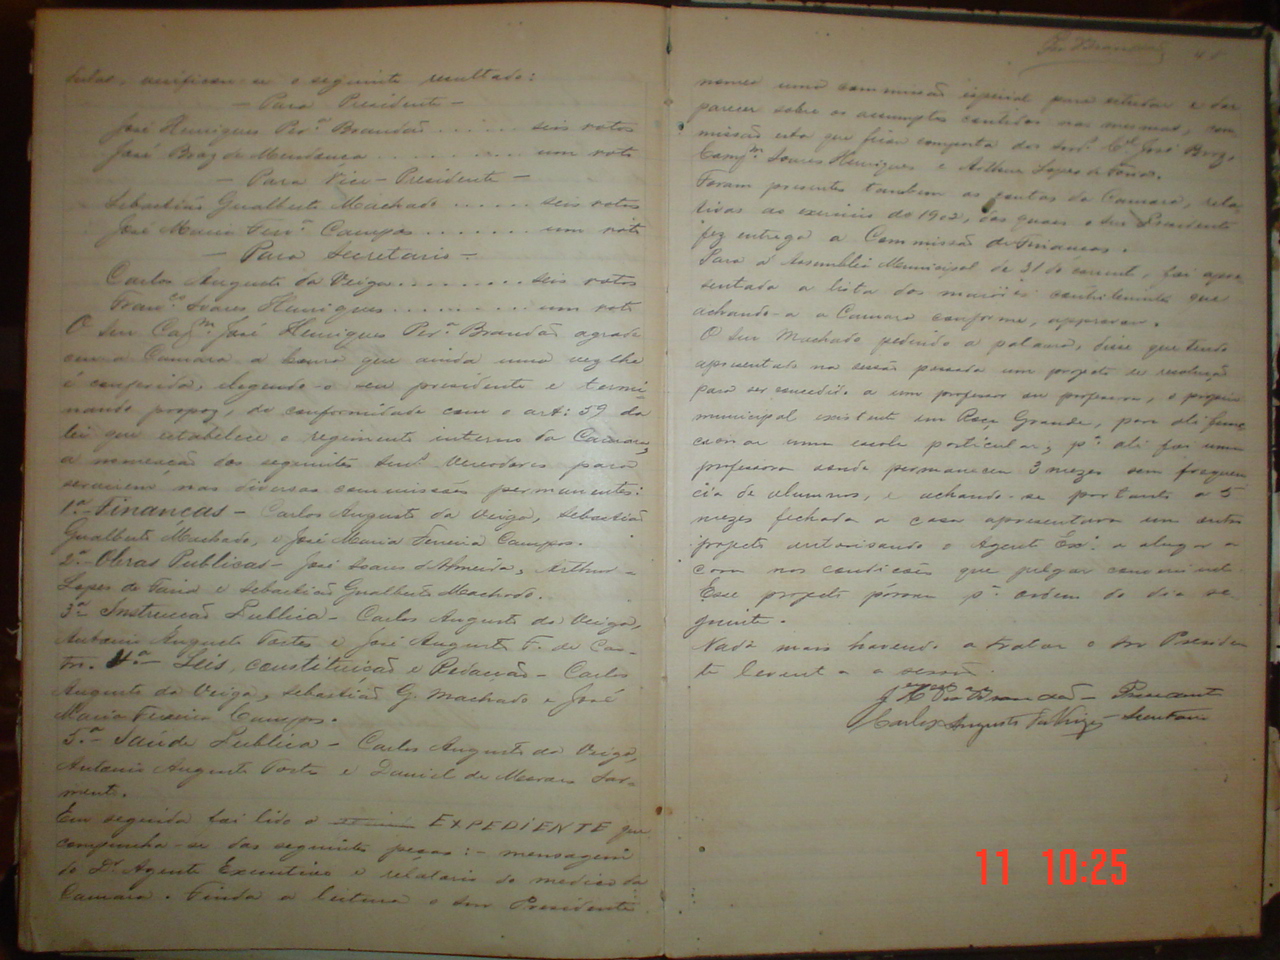 dulas, verificou-se o seguinte resultado:
— Para Presidente —
José Henriques Per.ª Brandão ...... seis votos
José Braz de Mendonça ...... um voto
— Para Vice-Presidente —
Sebastião Gualberto Machado ...... seis votos
José Maria Ferr.ª Campos ....... um voto
— Para Secretario —
Carlos Augusto da Veiga ........ seis votos
Fran.co Soares Henriques ........ um voto
O Snr Cap.m José Henriques Per.ª Brandão agrade
ceu a Camara a honra que ainda uma vez lhe
é conferida, elegendo-o seu presidente e termi-
nando propoz, de conformidade com o art: 59 da
lei que estabelece o regimento interno da Camara,
a nomeação dos seguintes Snr.s Vereadores para
servirem nas diversas commissões permanentes:
1.ª- Finanças - Carlos Augusto da Veiga, Sebastião
Gualberto Machado, e José Maria Ferreira Campos.
2.ª- Obras Publicas - José Soares d'Almeida, Arthur
Lopes de Faria e Sebastião Gualberto Machado.
3.ª Instrucção Publica - Carlos Augusto da Veiga,
Antonio Augusto Fortes e José Augusto F. de Cas-
tro. 4.ª- Leis, constituição e Redacção - Carlos
Augusto da Veiga, Sebastião G. Machado e José
Maria Ferreira Campos.
5.ª- Saúde Publica - Carlos Augusto da Veiga,
Antonio Augusto Fortes e Daniel de Moraes Sar-
mento.
Em seguida foi lido o EXPEDIENTE que
compunha-se das seguintes peças: - mensagem
do Dr. Agente Executivo e relatorio do medico da
Camara. Finda a leitura o snr Presidente
Per. Brandão
nomeo uma commissão especial para estudar e dar
parecer sobre os assumptos contidos nas mesmas, com
missão esta que ficou composta dos snr.s C.el José Braz,
Soares Henriques e Arthur Lopes de Faria.
Foram presentes tambem as contas da Camara, rela-
tivas ao exercicio de 1902, das quaes o snr Presidente
fez entrega a Commissão de Finanças.
Para a Assembléa Municipal de 31 do corrente, foi apre
sentada a lista dos maiores contribuintes que
achando-a a Camara conforme, approvou.
O Snr Machado pedindo a palavra, disse que tendo
apresentado na sessão passada um projecto de resolução
para ser concedido a um professor ou professora, o proprio
municipal existente em Roça Grande, para ali func
cionar uma escola particular, p.ª ali foi uma
professora aonde permaneceu 3 mezes sem frequen
cia de alumnos, e achando-se portanto a 5
mezes fechada a casa apresentava um outro
projecto autorisando o Agente Ex.º a alugar a
casa nas condicções que julgar conveniente.
Esse projecto p.ª ordem do dia se
guinte.
Nada mais havendo a tratar o snr Presiden
te levantou a sessão.
J. H. Per. Brandão - Presidente
Carlos Augusto da Veiga - Secretario
11 10:25